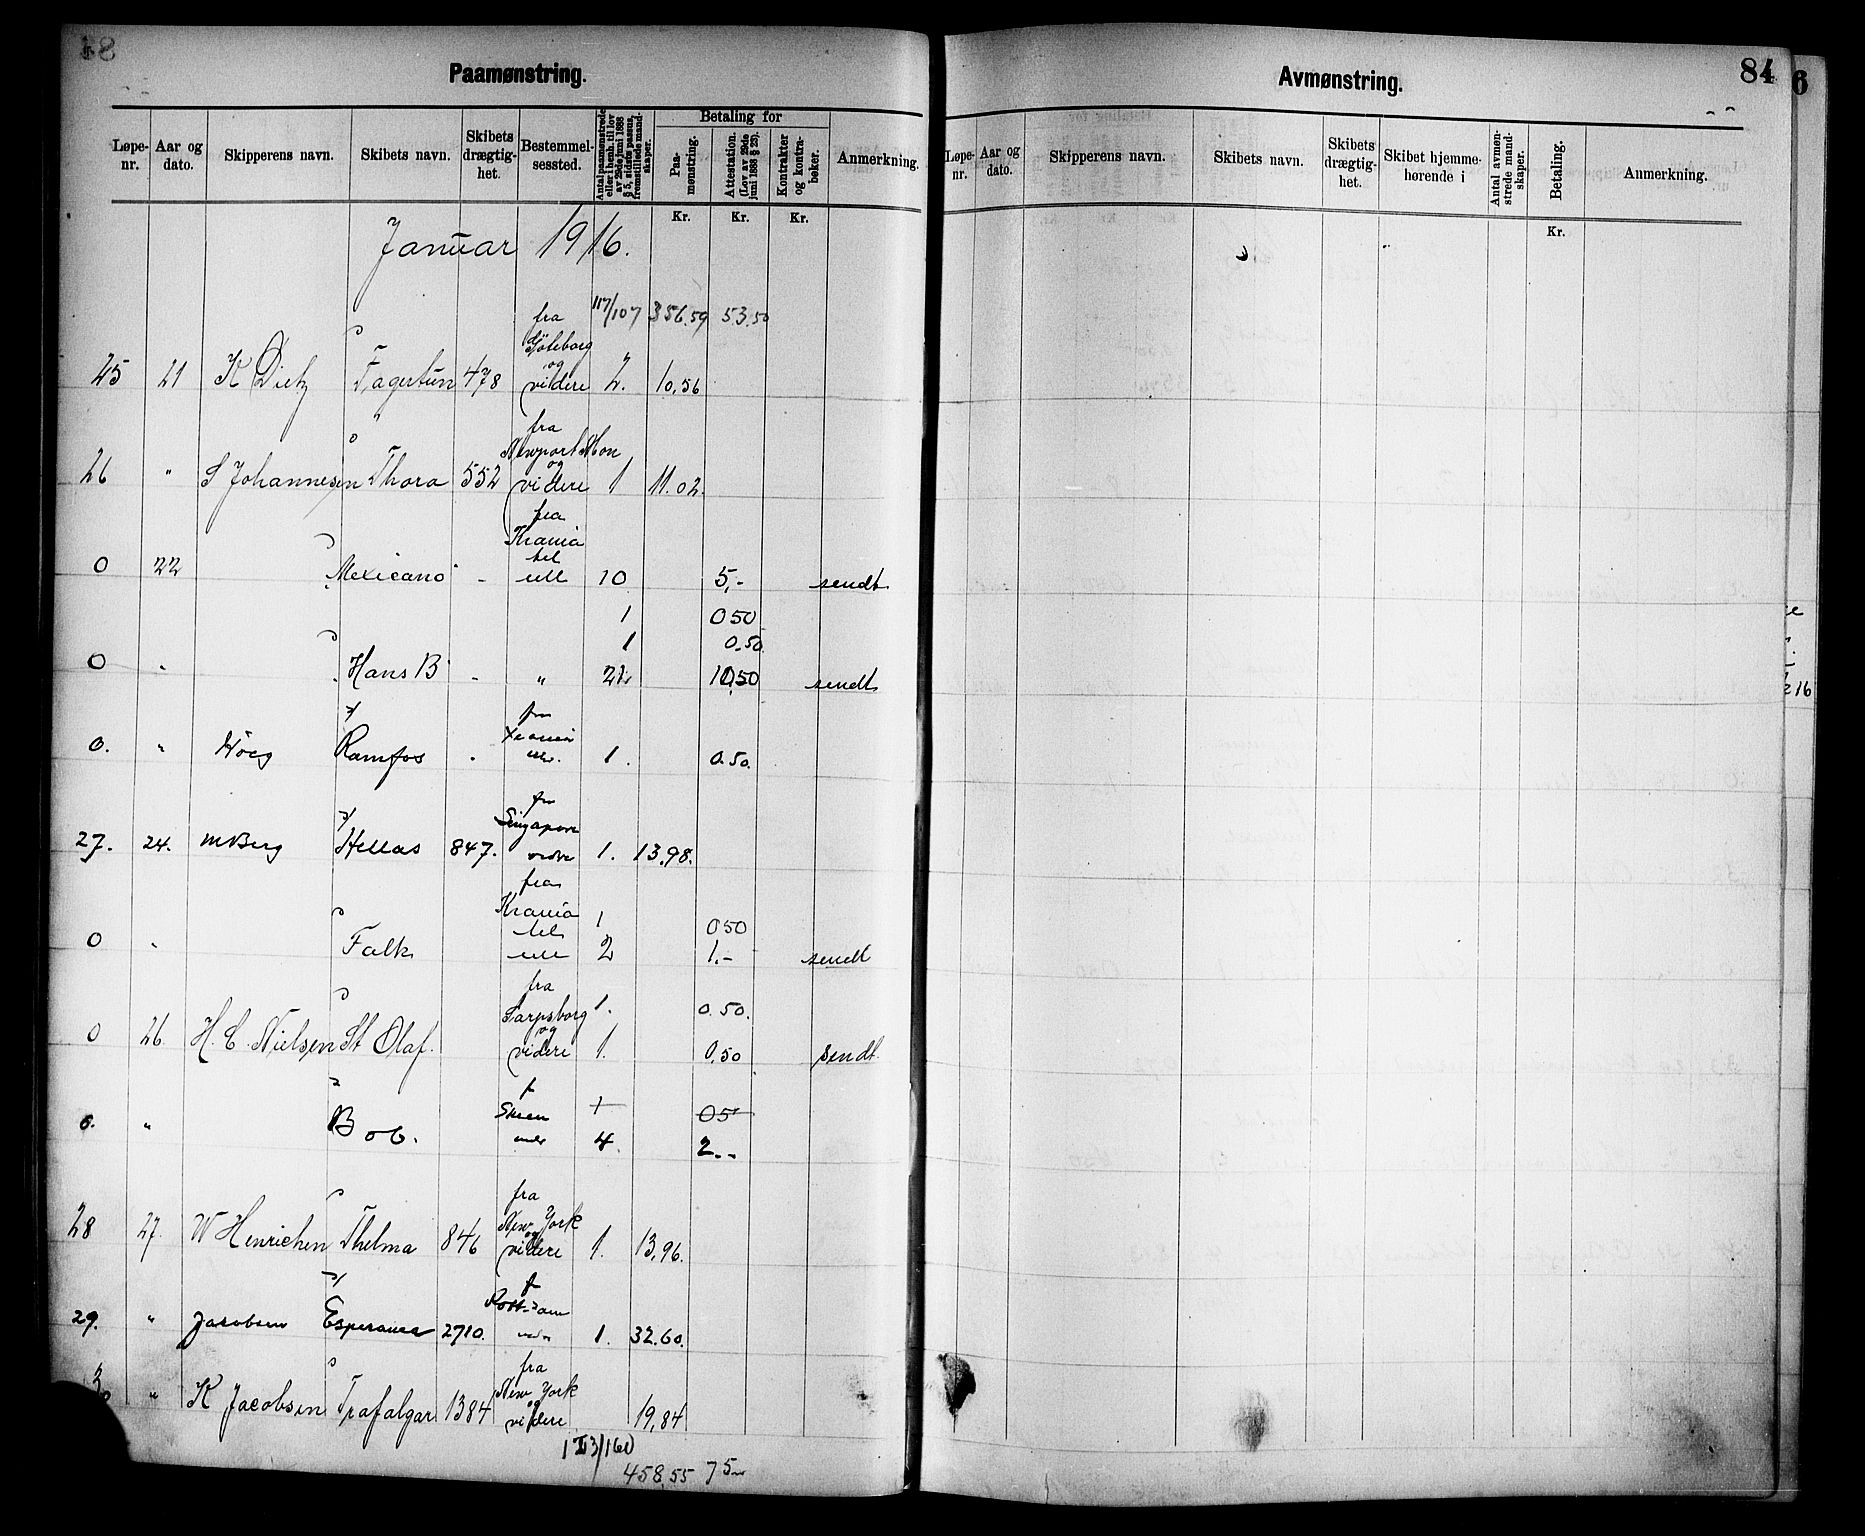 Paamønstring.
Løpe-nr. Aar og dato. Skipperens navn. Skibets navn. Skibets drægtig-het. Bestemmel-sessted. Antal paamønstrede eller i henh. til lov av 29de juni 1888 § 5, sidste passus, fremstillede mand-skaper. Betaling for Paa-mønstring. Attestation. (Lov av 29de juni 1888 § 23). Kontrakter og kontra-bøker. Anmerkning.
Kr. Kr. Kr.
Januar 1916.
117/107 356.59 53.50
25 21 K Dietz Fagertun 478 fra Göteborg og videre 2. 10,56
26 " S Johannesen Thora 552 fra Newport Mon og videre 1 11.02.
0 22 Mexicano - fra Krania til 10 5,- sendt
1 0 50
1 0.50
0 " Hans B - " 21 10,50 sendt
0. " Høeg Ramfos . 1. 0.50.
27. 24. M Berg Hellas 847. Singapore 1. 13,98.
0 " Falk fra Krania til 1 0 50
2 1.- sendt
0 26 H. C. Nielsen St Olaf. fra Sarpsborg og videre 1. 0.50.
1. 0,50 sendt
0. " Bob. f Skien 1 05
4. 2.-
28 27. W Henrichen Thelma 846 fra New York og videre 1. 13,96.
29. " Jacobsen Esperance 2710. f 1. 32.60.
30 " K Jacobsen Trafalgar 1384 fra New York og videre 19,84
458,55 75
Avmønstring.
84
6
Løpe-nr. Aar og dato. Skipperens navn. Skibets navn. Skibets drægtig-het. Skibet hjemme-hørende i Antal avmøn-strede mand-skaper. Betaling. Anmerkning.
Kr.
16